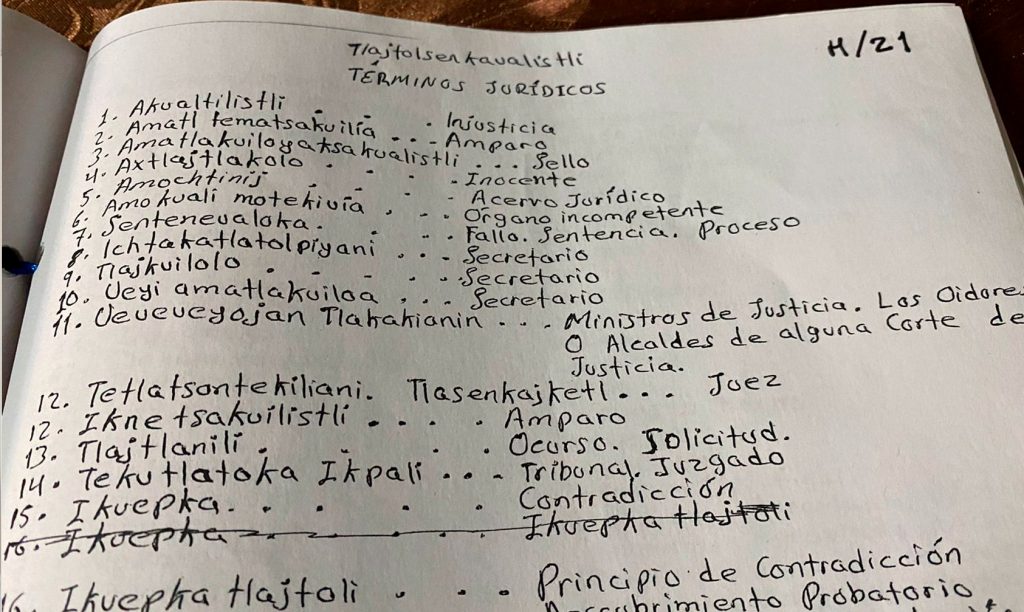 Tlajtolsenkavalistli
H/21
TÉRMINOS JURÍDICOS
1. Akualtilistli . . Injusticia
2. Amatl tematsakuilia . . . Amparo
3. Amatlakuiloyatsakualistli . . . Sello
4. Axtlajtlakolo . . . . Inocente
5. Amochtinij . . . . Acervo Jurídico
6. Amo kuali motekivia . . . Órgano incompetente
7. Sentenevaloka. . . . Fallo. Sentencia. Proceso
8. Ichtakatlatolpiyani . . . Secretario
9. Tlajkuilolo . . . . . Secretario
10. Ueyi amatlakuiloa . . . Secretario
11. Ueueueyojan Tlakakianin . . . Ministros de Justicia. Los Oidores
O Alcaldes de alguna Corte de
Justicia.
12. Tetlatsontekiliani. Tlasenkajketl . . . Juez
12. Iknetsakuilistli . . . . Amparo
13. Tlajtlanili . . . . Ocurso. Solicitud.
14. Tekutlatoka Ikpali . . . Tribunal. Juzgado
15. Ikuepka. . . . . Contradicción
16. Ikuepka Ikuepka tlajtoli
16. Ikuepka tlajtoli . . . Principio de Contradicción
Probatorio.